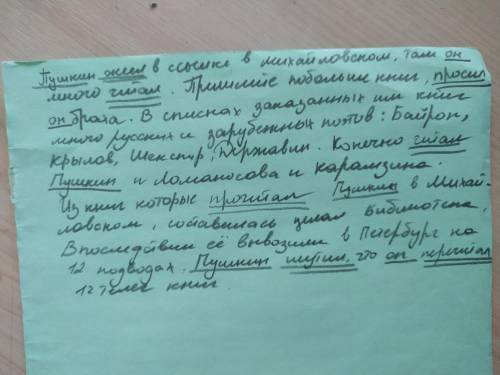 Пушкин жил в ссылке в михайловском, там он
много читал. Пришлите побольше книг, просил
он брата. В списках заказанных им книг
много русских и зарубежных поэтов: Байрон,
Крылов, Шекспир, Державин. Конечно читал
Пушкин и Ломаносова и карамзина.
Из книг которые прочитал Пушкин в Михай-
ловском, составилась целая Библиотека.
Впоследствии её вывозили в Петербург на
12 подводах. Пушкин шутил, что он перечитал
12 телег книг.